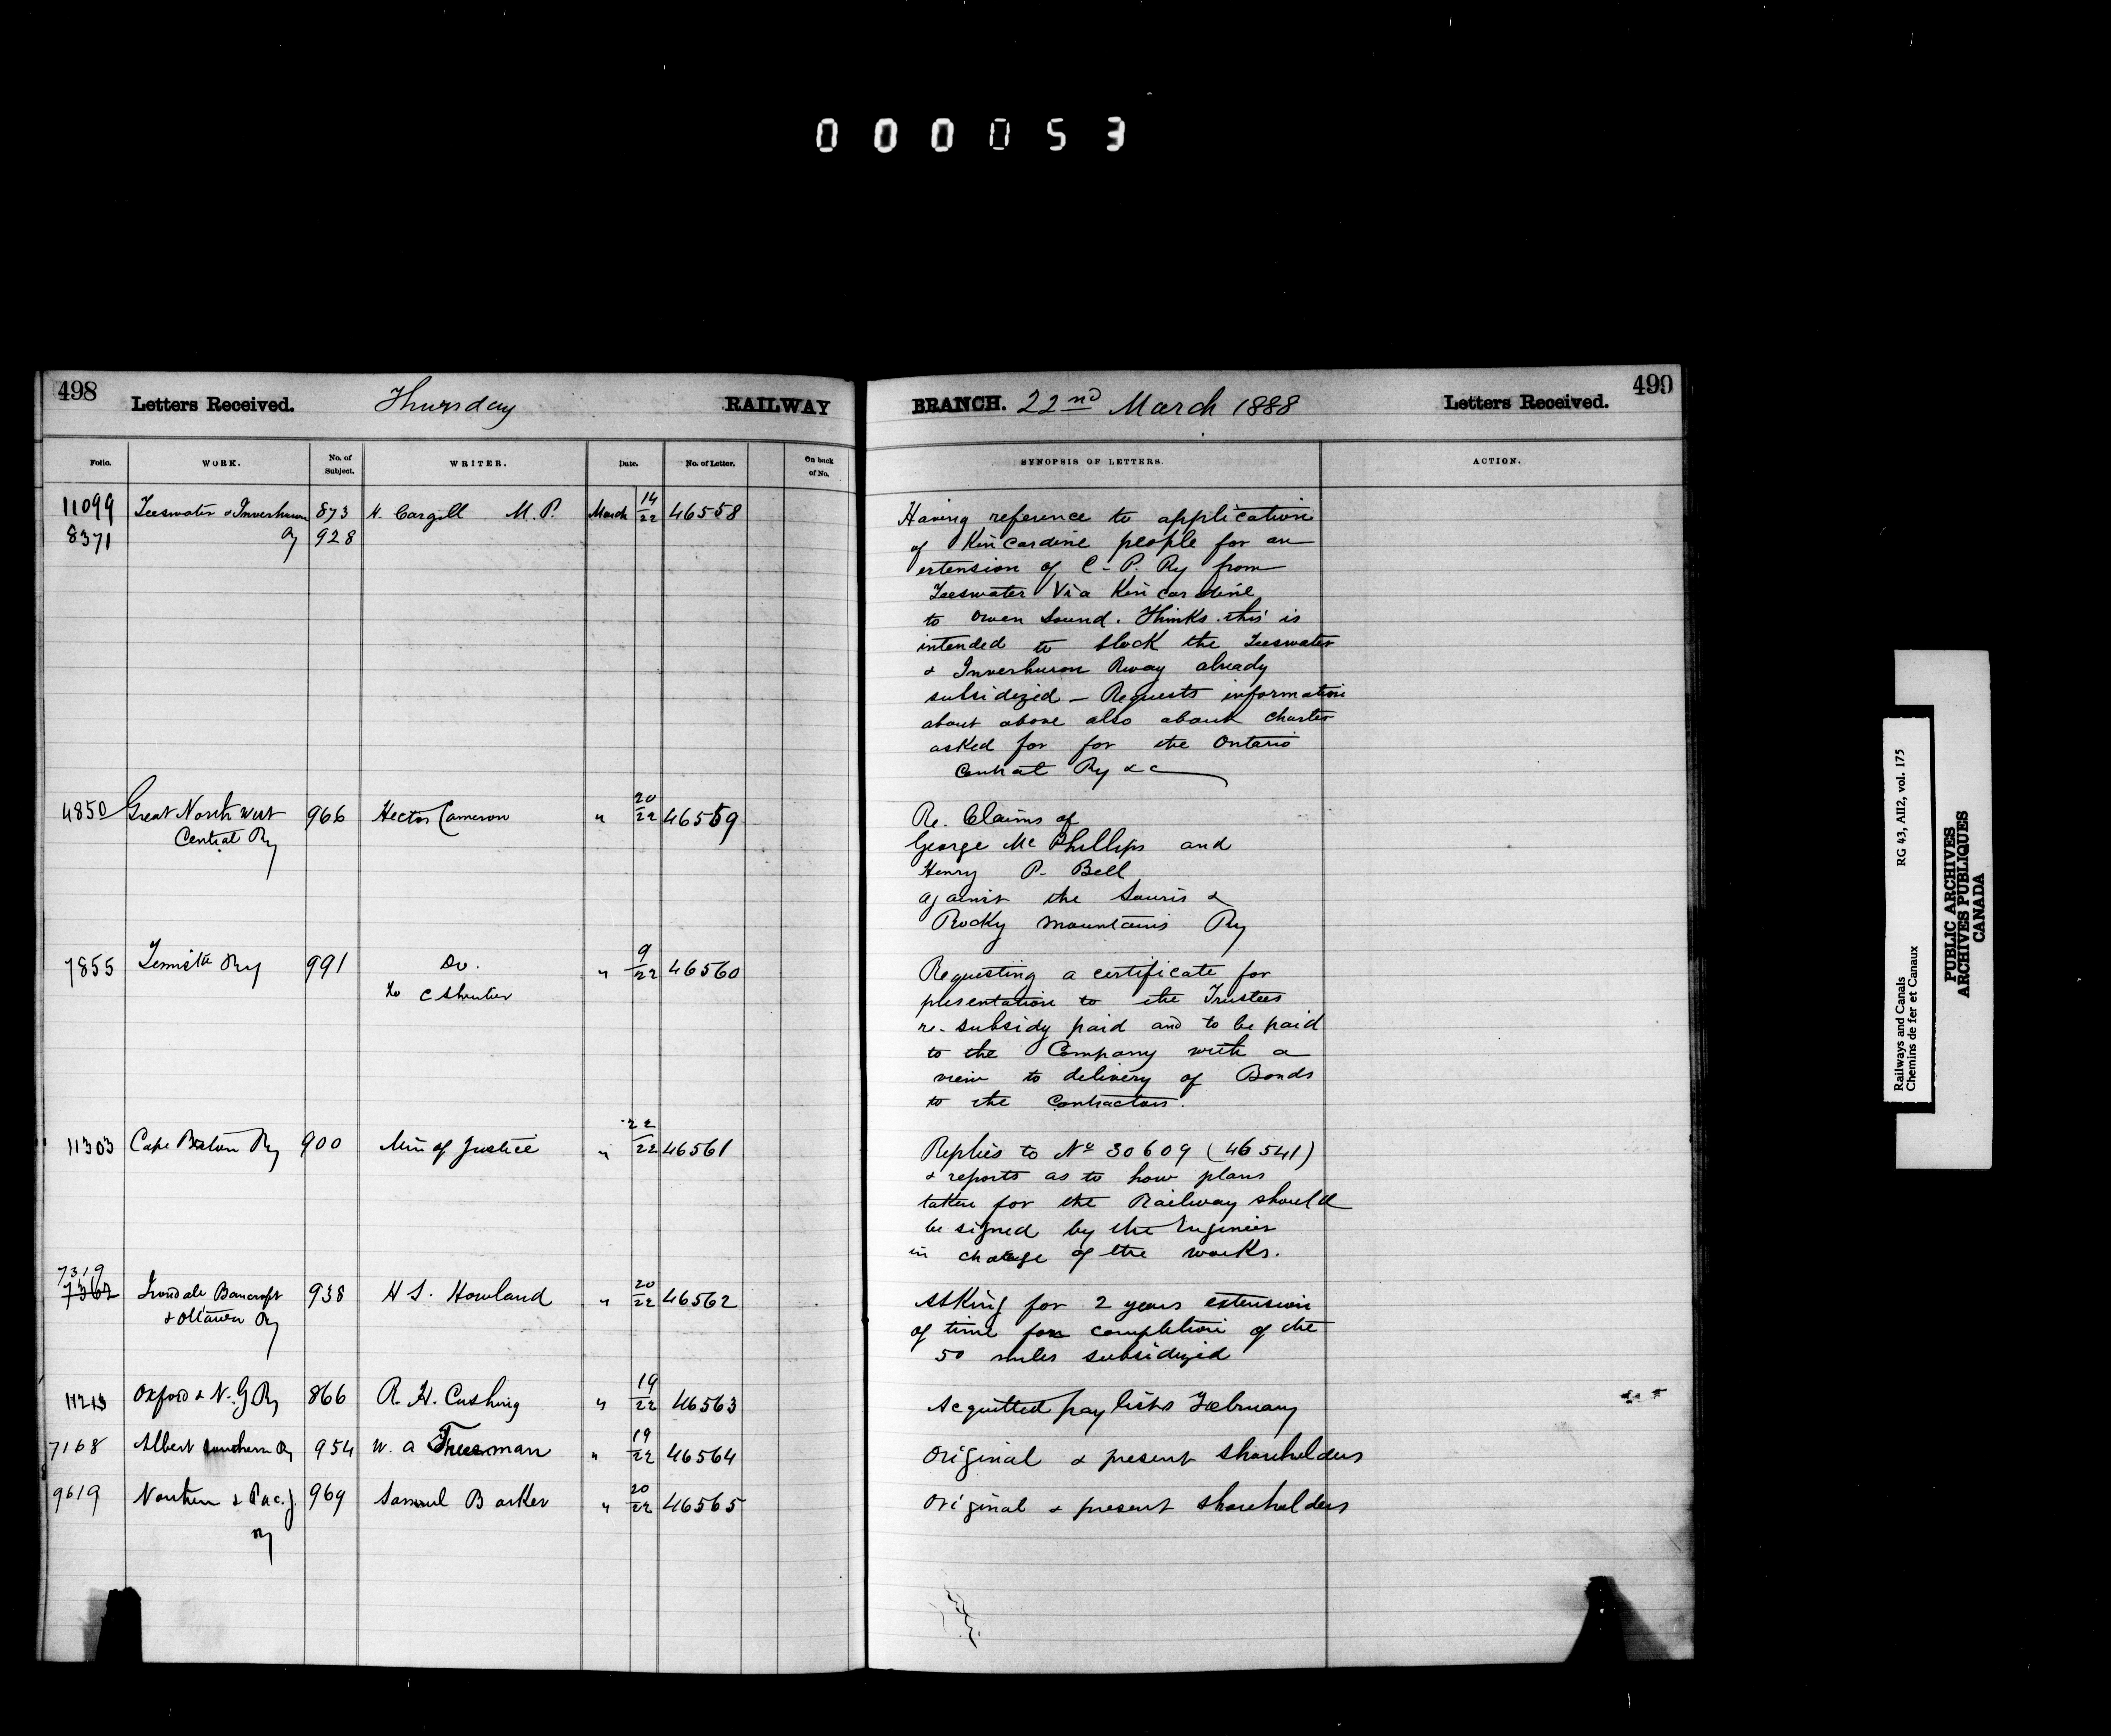 000053
498 Letters Received. Thursday RAILWAY
Folio. WORK. No. of Subject. WRITER. Date. No. of Letter. On back of No.
11099 Teeswater & Inverhuron 873 H. Cargill M.P. March 14/22 46558
8371 Ry 928
4850 Great North West 966 Hector Cameron " 20/22 46559
Central Ry
7855 Temisk Ry 991 Do. " 9/22 46560
to C Shreiber
11303 Cape Breton Ry 900 Min of Justice " 22/22 46561
7319
7362 Irondale Bancroft 938 H S. Howland " 20/22 46562
& Ottawa Ry
11213 Oxford & N. G Ry 866 R. H. Cushing " 19/22 46563
7168 Albert Southern Ry 954 W. A Trueman " 19/22 46564
9619 Northern & Pac. J. 969 Samuel Barker " 20/22 46565
Ry
BRANCH. 22nd March 1888 Letters Received. 499
SYNOPSIS OF LETTERS. ACTION.
Having reference to application
of Kincardine people for an
extension of C-P. Ry from
Teeswater Via Kincardine
to Owen Sound. Thinks this is
intended to block the Teeswater
& Inverhuron Rway already
subsidized - Requests information
about above also about charter
asked for for the Ontario
Central Ry &c
Re. Claims of
George McPhillips and
Henry P. Bell
against the Souris &
Rocky Mountains Ry
Requesting a certificate for
presentation to the Trustees
re- subsidy paid and to be paid
to the Company with a
view to delivery of Bonds
to the Contractors.
Replies to No 30609 (46541)
& reports as to how plans
taken for the Railway should
be signed by the Engineer
in charge of the works.
Asking for 2 years extension
of time for completion of the
50 miles subsidized
Acquitted pay lists February
Original & present shareholders
Original & present shareholders
Railways and Canals RG 43, AII2, vol. 175
Chemins de fer et Canaux
PUBLIC ARCHIVES
ARCHIVES PUBLIQUES
CANADA